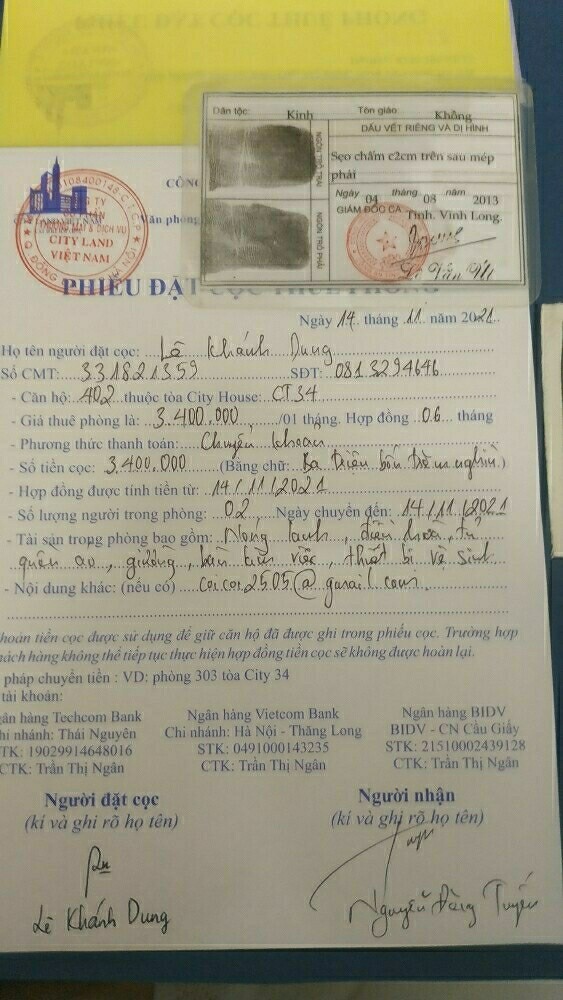 Dân tộc: Kinh Tôn giáo: Không
DẤU VẾT RIÊNG VÀ DỊ HÌNH
Sẹo chấm c2cm trên sau mép
phải
NGÓN TRỎ TRÁI
NGÓN TRỎ PHẢI
Ngày 04 tháng 08 năm 2013
GIÁM ĐỐC CA Tỉnh. Vĩnh Long.
CÔN
Văn phòng
CITY LAND
VIỆT NAM
PHIẾU ĐẶT CỌC THUÊ PHÒNG
Ngày 14 tháng 11 năm 2021
Họ tên người đặt cọc: Lê Khánh Dung
Số CMT: 331821359 SĐT: 0813294646
- Căn hộ: 402 thuộc tòa City House: CT34
- Giá thuê phòng là: 3.400.000 /01 tháng. Hợp đồng 06 tháng
- Phương thức thanh toán: Chuyển khoản
- Số tiền cọc: 3.400.000 (Bằng chữ: Ba triệu bốn trăm nghìn)
- Hợp đồng được tính tiền từ: 14/11/2021
- Số lượng người trong phòng: 02 Ngày chuyển đến: 14/11/2021
- Tài sản trong phòng bao gồm: Nóng lạnh, điều hòa, tủ
quần áo, giường, bàn làm việc, thiết bị vệ sinh
- Nội dung khác: (nếu có) coicoi2505@gmail.com
hoản tiền cọc được sử dụng để giữ căn hộ đã được ghi trong phiếu cọc. Trường hợp
hách hàng không thể tiếp tục thực hiện hợp đồng tiền cọc sẽ không được hoàn lại.
pháp chuyển tiền : VD: phòng 303 tòa City 34
tài khoản:
gân hàng Techcom Bank Ngân hàng Vietcom Bank Ngân hàng BIDV
hi nhánh: Thái Nguyên Chi nhánh: Hà Nội - Thăng Long BIDV - CN Cầu Giấy
TK: 19029914648016 STK: 0491000143235 STK: 21510002439128
CTK: Trần Thị Ngân CTK: Trần Thị Ngân CTK: Trần Thị Ngân
Người đặt cọc Người nhận
(kí và ghi rõ họ tên) (kí và ghi rõ họ tên)
Lê Khánh Dung Nguyễn Đăng Tuyến